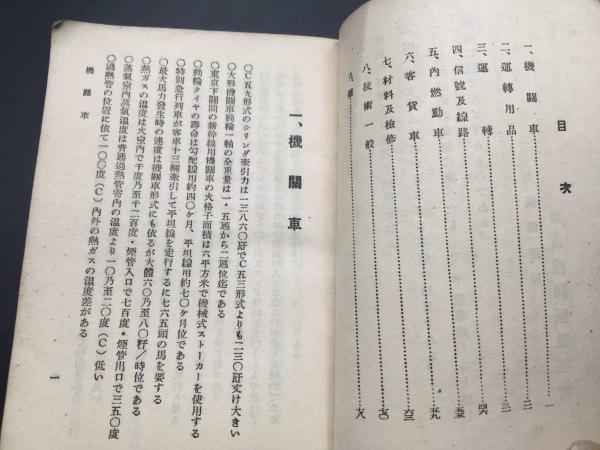 目次
一、機關車……一
二、運轉用品……二
三、運轉……三
四、信號及線路
五、內燃動車
六、客貨車
七、材料及檢修
八、技術一般
一、機關車
〇C五九形式のシリンダ牽引力は一三八六〇瓩でC五三形式よりも二三〇瓩丈け大きい
〇大形機關車動輪一軸の全重量は一・五瓲から二瓲位迄である
〇東京下關間の新幹線用機關車の火格子面積は六平方米で機械式ストーカーを使用する
〇動輪タイヤの壽命は勾配線用約四〇ヶ月、平坦線用約七〇ヶ月位である
〇特別急行列車が客車十三輛牽引して平坦線を走行するに七六五頭の馬を要する
〇最大馬力發生時の速度は機關車形式にも依るが大體六〇乃至八〇粁/時位である
〇熱ガスの溫度は火室內で千度乃至千二百度・煙管入口で七百度・煙管出口で三五〇度
〇蒸氣室內蒸氣溫度は普通過熱管寄內の溫度より一〇乃至二〇度(C)低い
〇過熱管の位置に依て一〇〇度(C)內外の熱ガスの溫度差がある
機關車
一